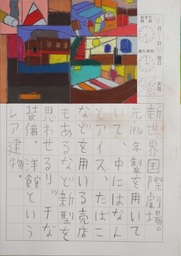 新世界国際劇場
年製を用
いて、中にはなん
とアイス、たばこ
などを用いる売店
もあるなど新型を
思わせるリッチな
装備。洋館という
レア建物。